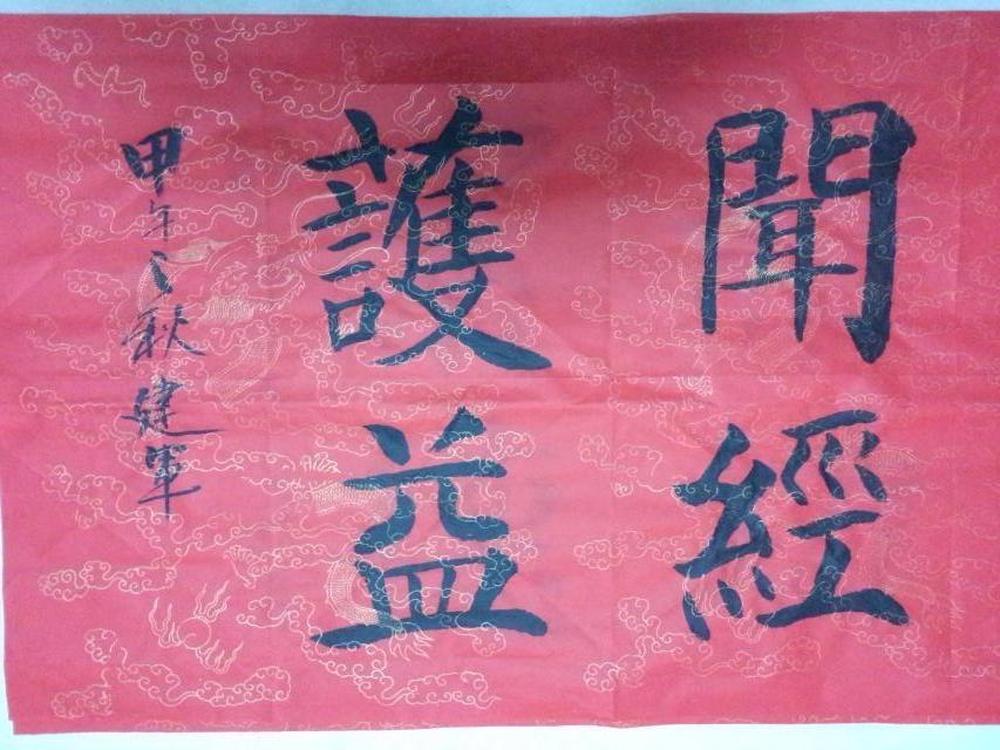 聞經
護益
甲午之秋建軍